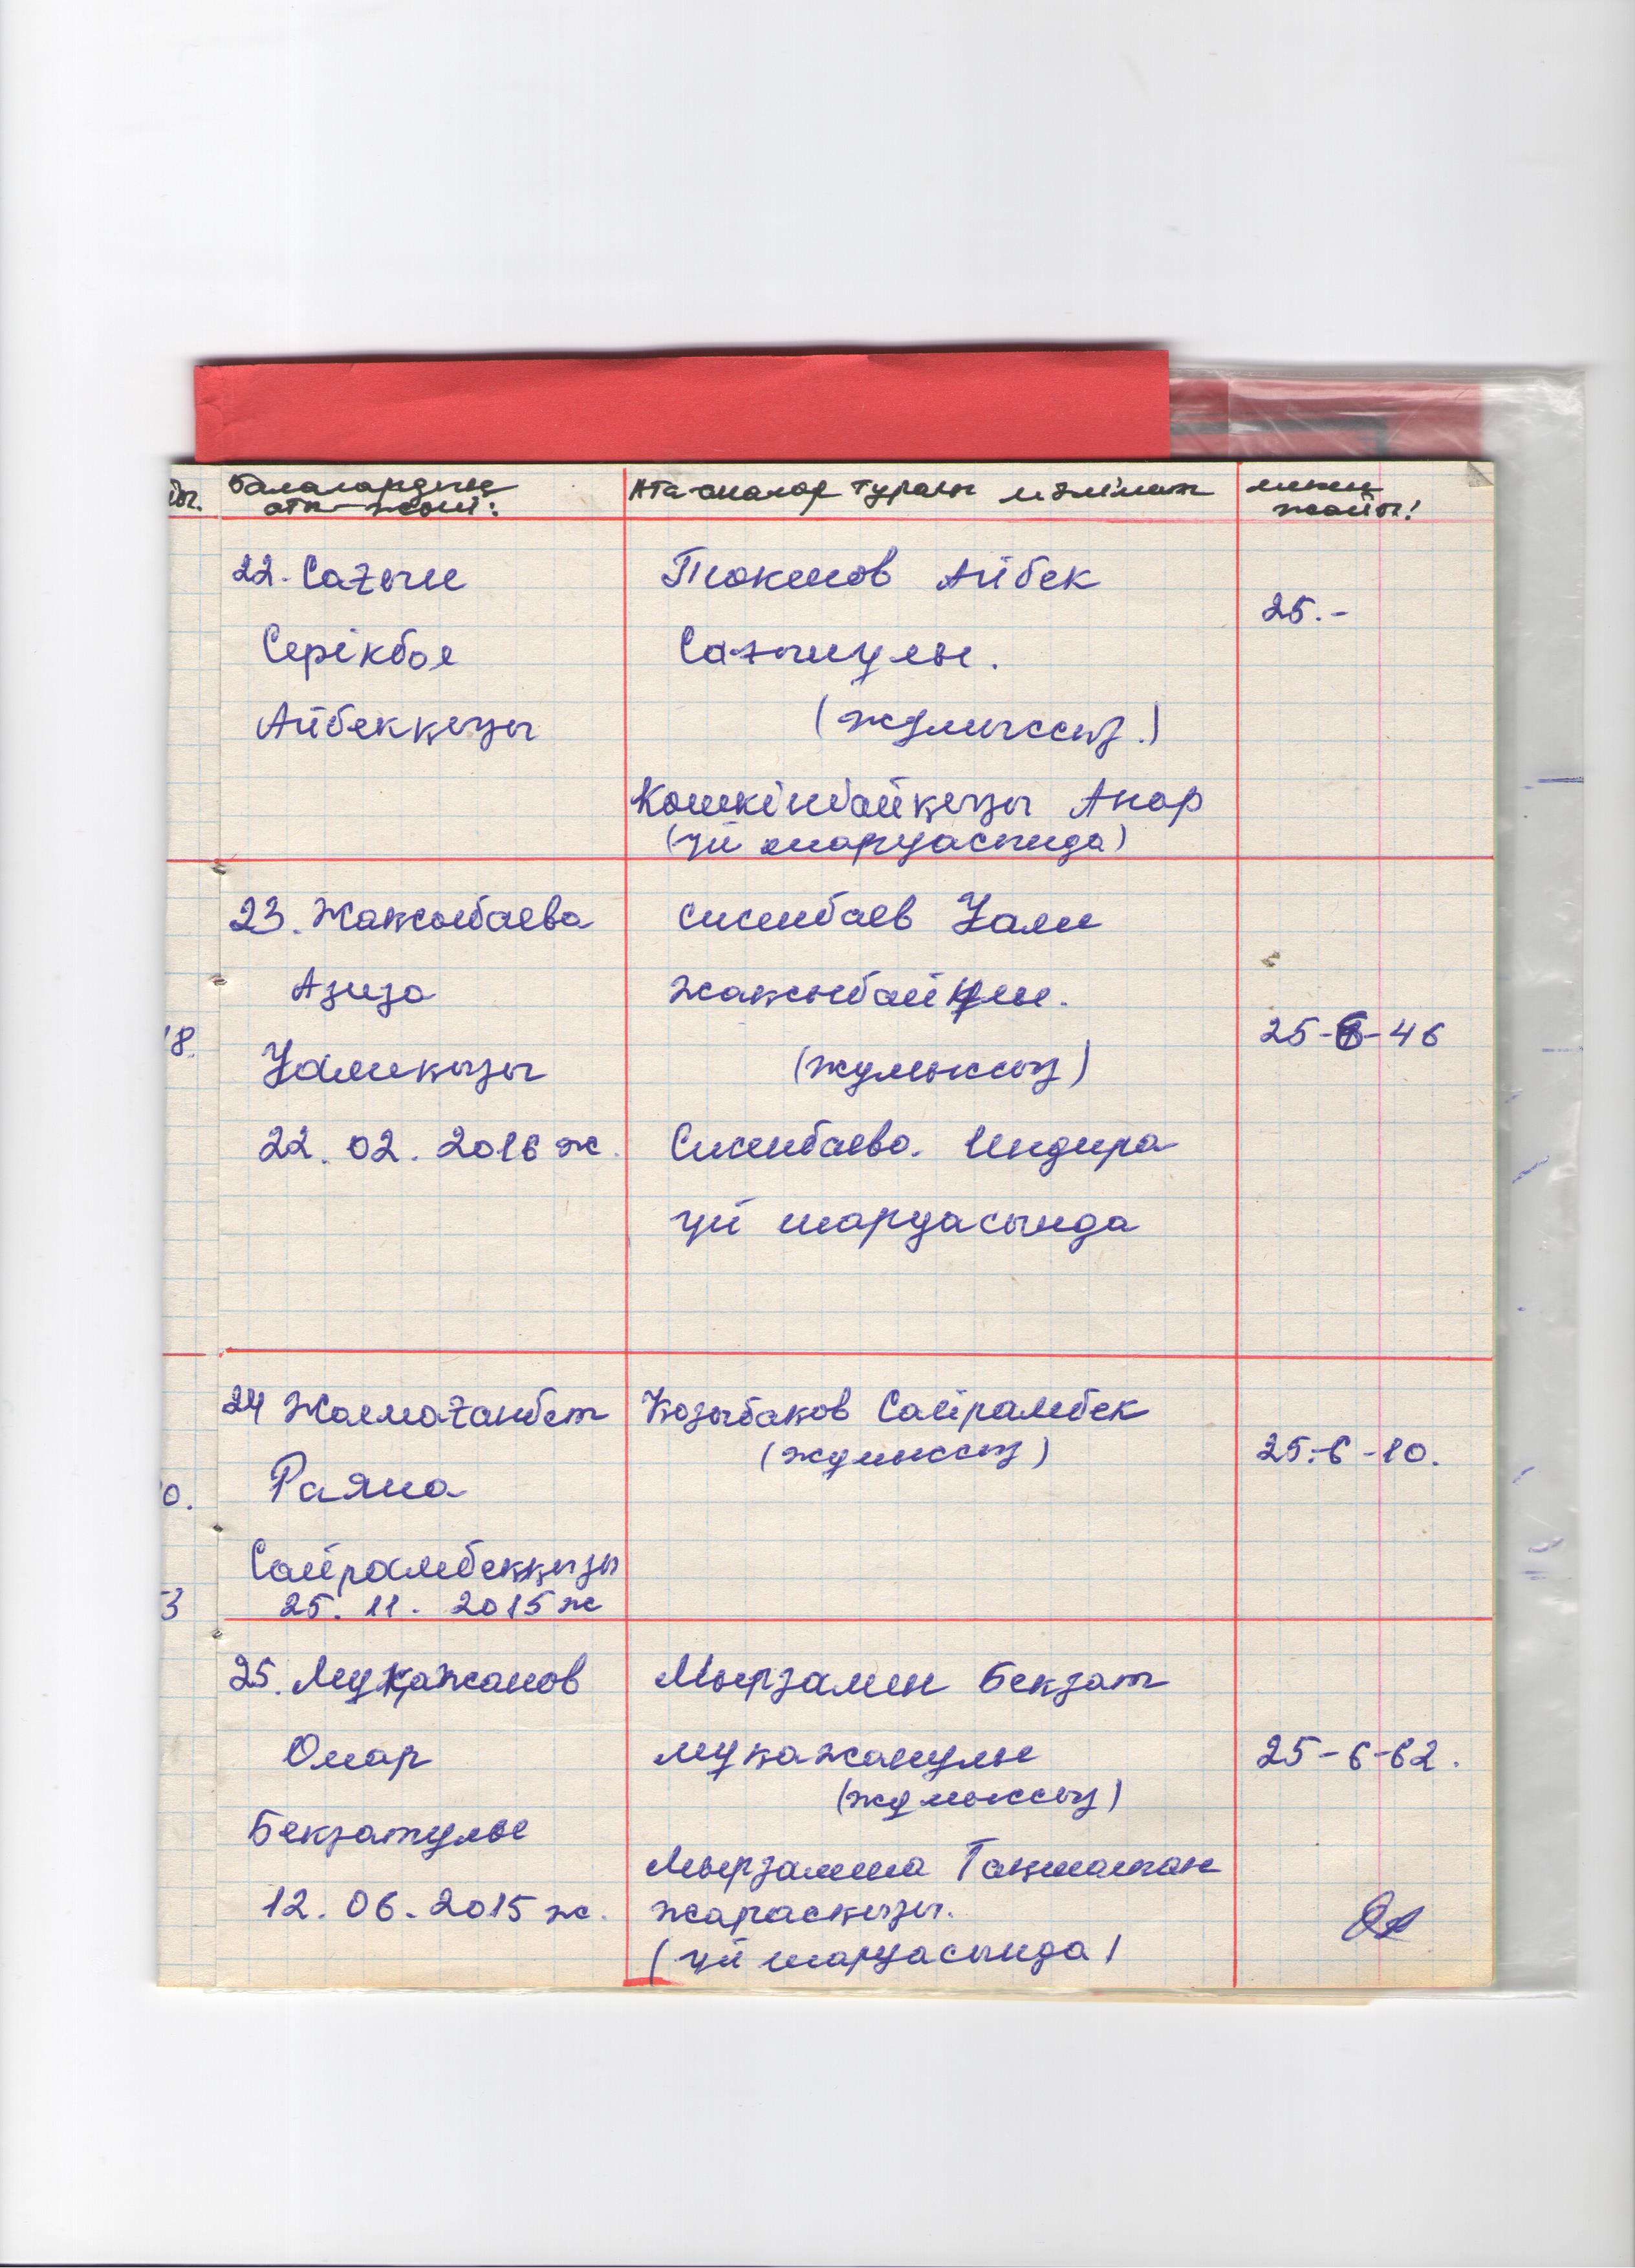 балалардың аты-жөні:
Ата-аналар туралы мәлімат
мекен жайы!
22. Сағын
Серікбол
Айбекқызы
Тюкенов Айбек
Сағынұлы.
(жұмыссыз.)
Кошкінбайқызы Анар
(үй шаруасында)
25.-
23. Жақсыбаева
Азиза
Уәлиқызы
22. 02. 2016 ж.
Сисенбаев Уали
жақсыбайұлы.
(жұмыссыз)
Сисенбаева. Индира
үй шаруасында
18.
25-6-46
24 Жалмағанбет
Раяна
Сайрамбекқызы
25. 11. 2015 ж
Қозыбаков Сайрамбек
(жұмыссыз)
25.-6-10.
0.
3
25. Мұқажанов
Омар
Бекзатұлы
12. 06. 2015 ж.
Мырзамен Бекзат
мұқажанұлы
(жұмыссыз)
Мырзамина
жарасқызы.
(үй шаруасында)
25-6-62.